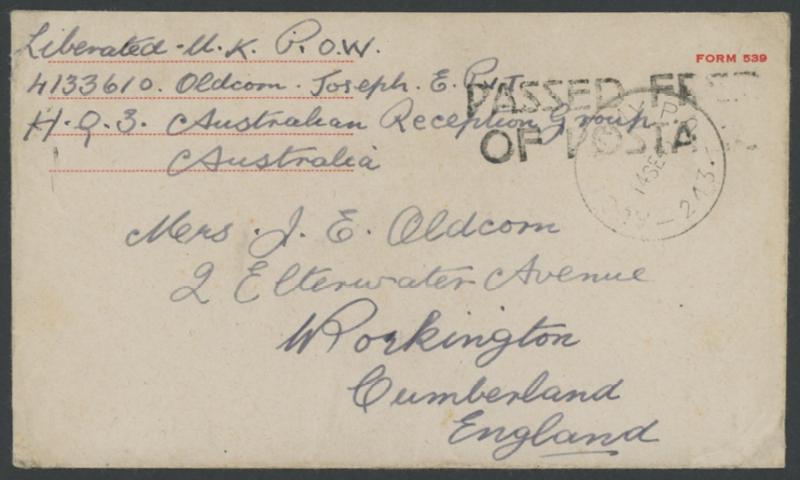 Liberated - U.K. P.O.W.
FORM 539
4133610. Oldcorn. Joseph. E. Pvt.
PASSED FREE
H.Q. 3. Australian Reception Group
OF POSTA
Australia
14 SE
243
Mrs. J. E. Oldcorn
2 Elterwater Avenue
Workington
Cumberland
England